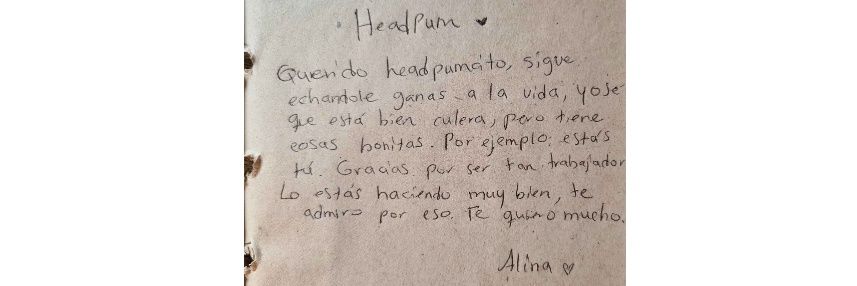 HeadPum ♥
Querido headpumcito, sigue
echandole ganas a la vida, yo sé
que está bien culera, pero tiene
cosas bonitas. Por ejemplo: estás
tú. Gracias por ser tan trabajador
Lo estás haciendo muy bien, te
admiro por eso. Te quiero mucho.
Alina ♡